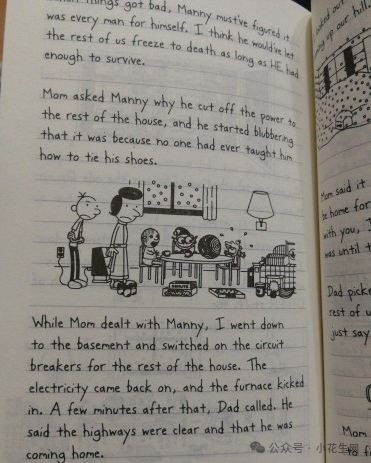 things got bad, Manny must've figured it
was every man for himself. I think he would've let
the rest of us freeze to death as long as HE had
enough to survive.
Mom asked Manny why he cut off the power to
the rest of the house, and he started blubbering
that it was because no one had ever taught him
how to tie his shoes.
While Mom dealt with Manny, I went down
to the basement and switched on the circuit
breakers for the rest of the house. The
electricity came back on, and the furnace kicked
in. A few minutes after that, Dad called. He
said the highways were clear and that he was
coming home.
looked out
up our hill.
Mom said it
be home for
with you, I
was until t
Dad picke
rest of u
just say
Mom
公众号·小花生网